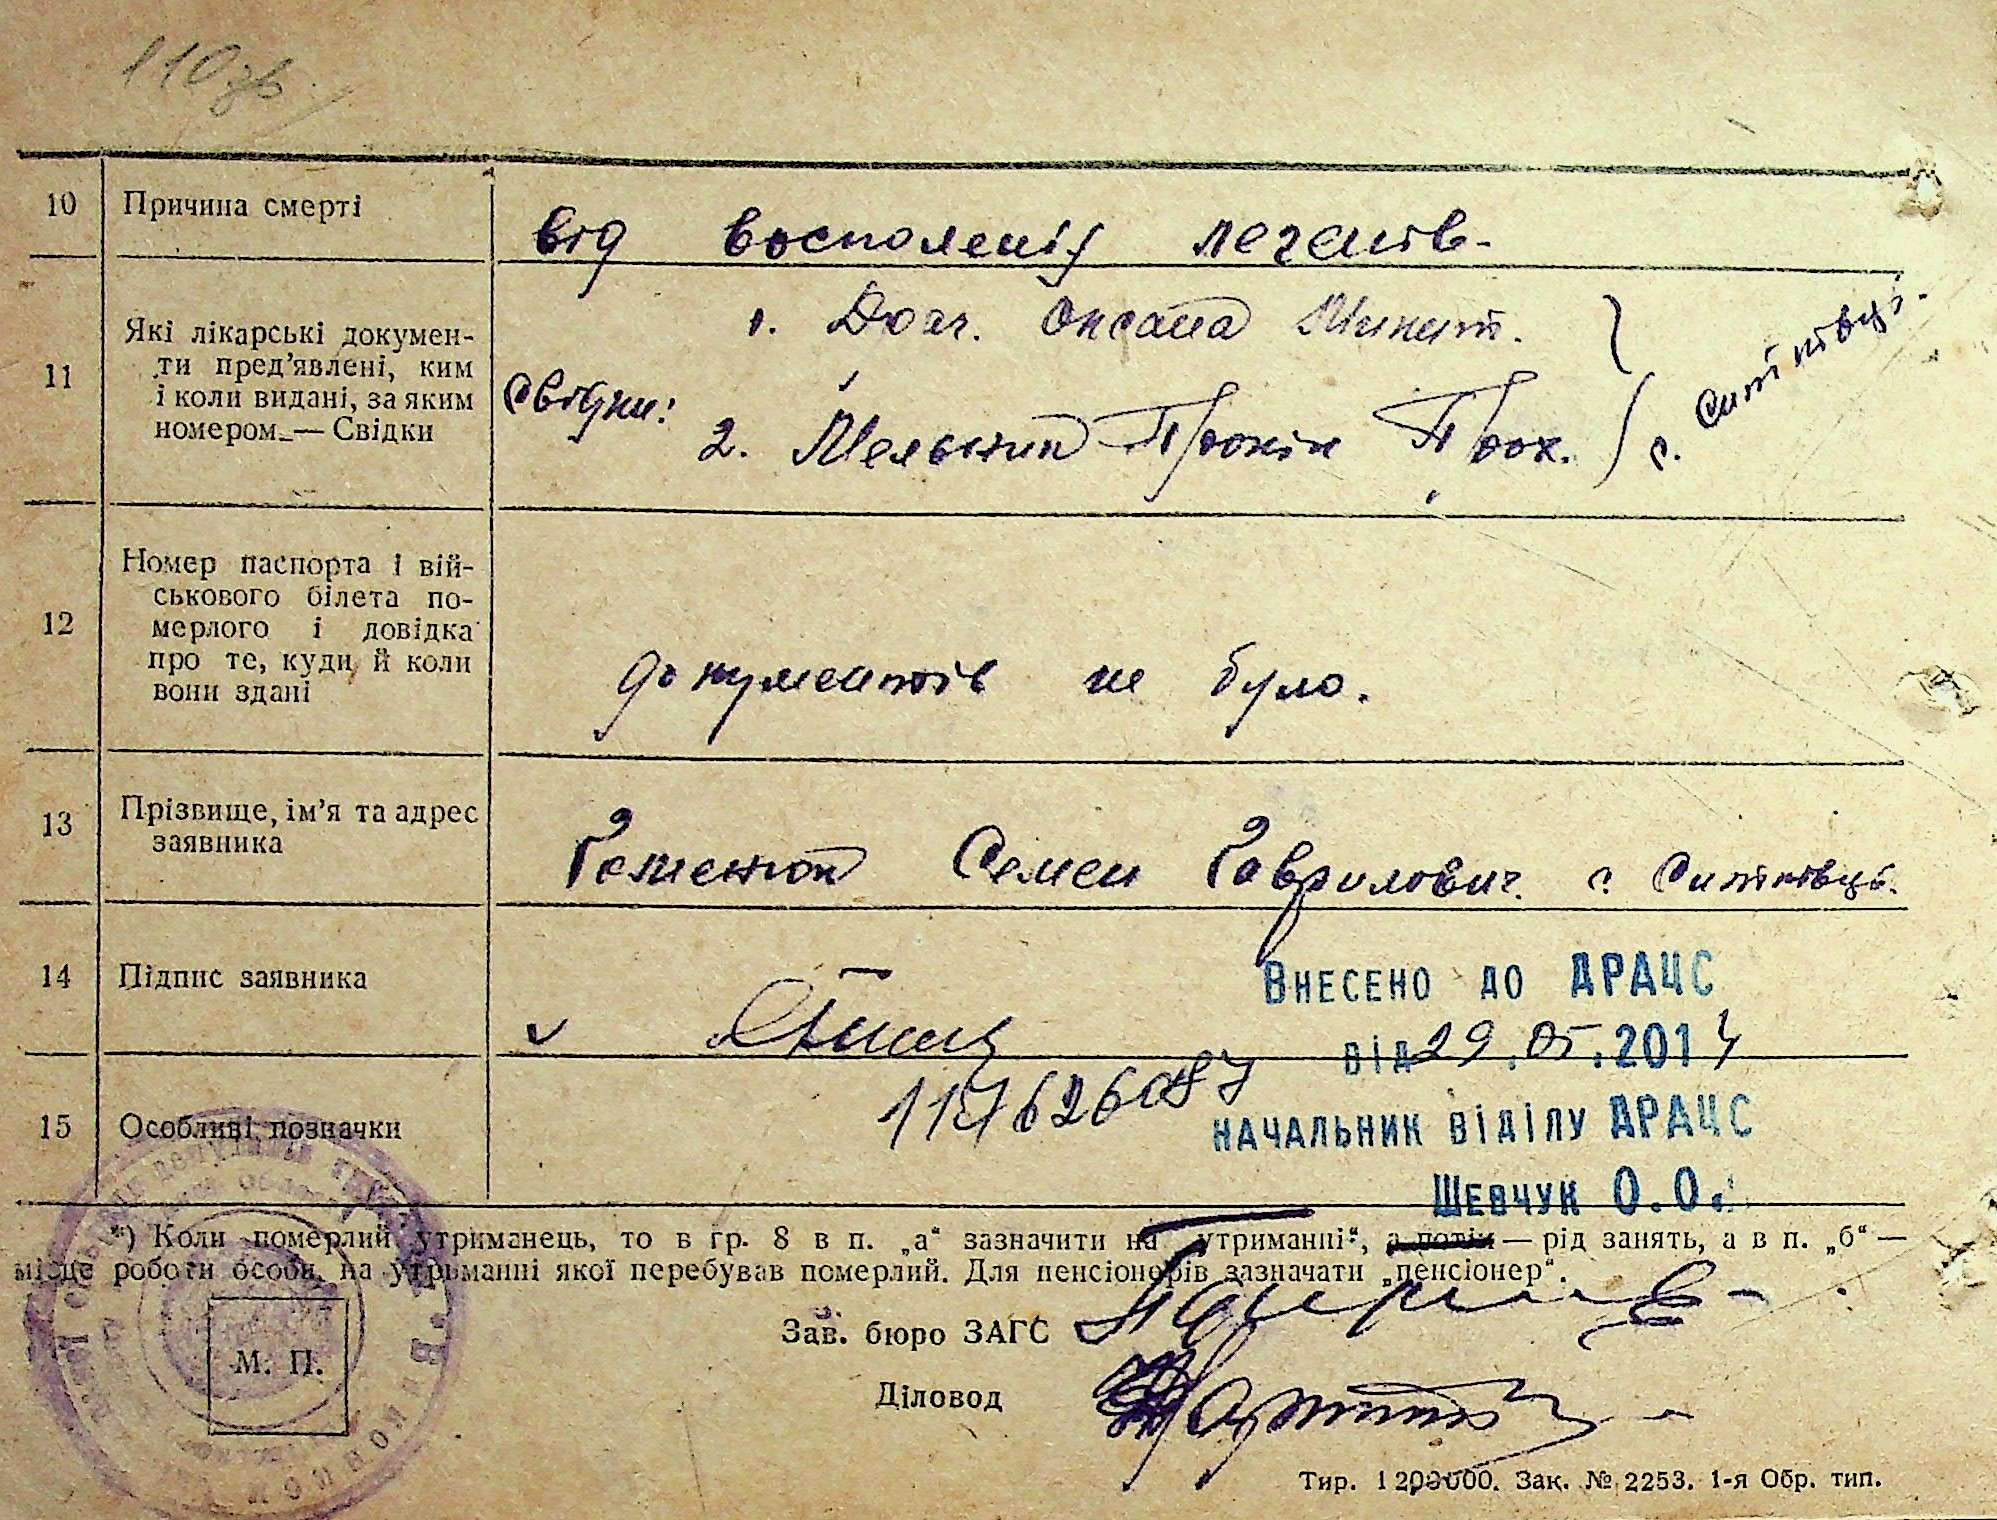 110 зв.
10 Причина смерті
від восполенія легенів.
11 Які лікарські докумен-
ти пред'явлені, ким
і коли видані, за яким
номером. — Свідки
Свідки:
1. Оксана Микит.
2. Мельник Прокіп Прок.
с. Ситківці.
12 Номер паспорта і вій-
ськового білета по-
мерлого і довідка
про те, куди й коли
вони здані
документів не було.
13 Прізвище, ім'я та адрес
заявника
Семен Гаврилович с. Ситківці.
14 Підпис заявника
Внесено до ДРАЦС
від 29.05.2014
15 Особливі позначки
НАЧАЛЬНИК ВІДІЛУ ДРАЦС
ШЕВЧУК О.О.
*) Коли померлий утриманець, то в гр. 8 в п. „а“ зазначити на утриманні“, а потім — рід занять, а в п. „б“ —
місце роботи особи, на утриманні якої перебував померлий. Для пенсіонерів зазначати „пенсіонер“.
Зав. бюро ЗАГС
М. П.
Діловод
Тир. 1200000. Зак. № 2253. 1-я Обр. тип.